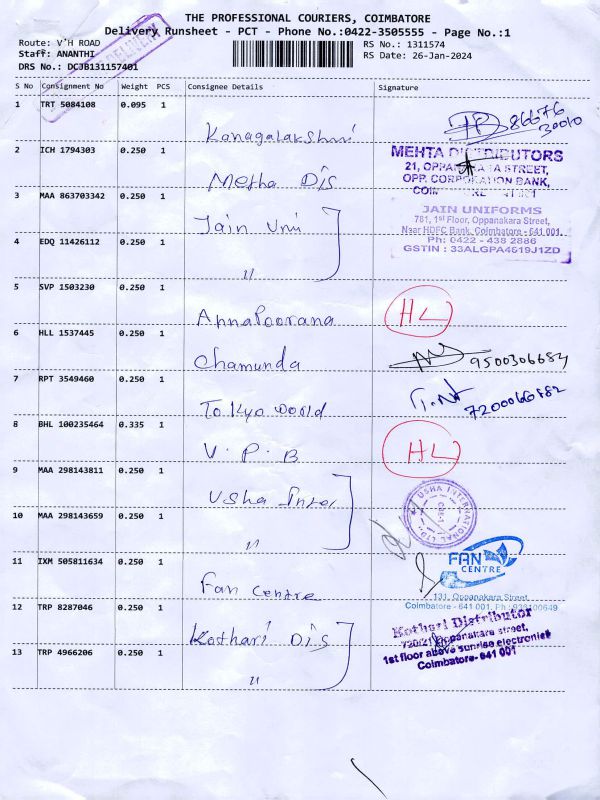 THE PROFESSIONAL COURIERS, COIMBATORE
Delivery Runsheet - PCT - Phone No.:0422-3505555 - Page No.:1
Route: V'H ROAD
RS No.: 1311574
Staff: ANANTHI
RS Date: 26-Jan-2024
DRS No.: DCJB131157401
DELIVERY
S No Consignment No Weight PCS Consignee Details Signature
1 TRT 5084108 0.095 1 Kanagalakshmi 86676
30010
2 ICH 1794303 0.250 1 Metha Dis
MEHTA DISTRIBUTORS
21, OPPANAKARA STREET,
OPP. CORPORATION BANK,
3 MAA 863703342 0.250 1 Jain Uni
JAIN UNIFORMS
781, 1st Floor, Oppanakara Street,
Near HDFC Bank, Coimbatore - 641 001.
Ph: 0422 - 438 2886
GSTIN : 33ALGPA4619J1ZD
4 EDQ 11426112 0.250 1 "
5 SVP 1503230 0.250 1 Annapoorana HL
6 HLL 1537445 0.250 1 Chamunda 9500306684
7 RPT 3549460 0.250 1 Tokyo world 7200066882
8 BHL 100235464 0.335 1 V. P. B HL
9 MAA 298143811 0.250 1 Usha Inter
USHA INTERNATIONAL LTD.
10 MAA 298143659 0.250 1 "
11 IXM 505811634 0.250 1 Fan Centre
FAN
CENTRE
131, Oppanakara Street,
Coimbatore - 641 001. Ph :
12 TRP 8287046 0.250 1 Kothari Dis
Kothari Distributor
Oppanakara street,
1st floor above sunrise electronics
Coimbatore- 641 001
13 TRP 4966206 0.250 1 "